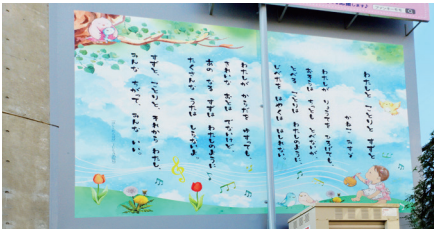 わたしと ことりと すずと
かねこ みすゞ
わたしが りょうてを ひろげても、
おそらは ちっとも とべないが、
とべる ことりは わたしのように、
じべたを はやくは はしれない。
わたしが からだを ゆすっても、
きれいな おとは でないけど、
あの なる すずは わたしのように、
たくさんな うたは しらないよ。
すずと、ことりと、それから わたし、
みんな ちがって、みんな いい。